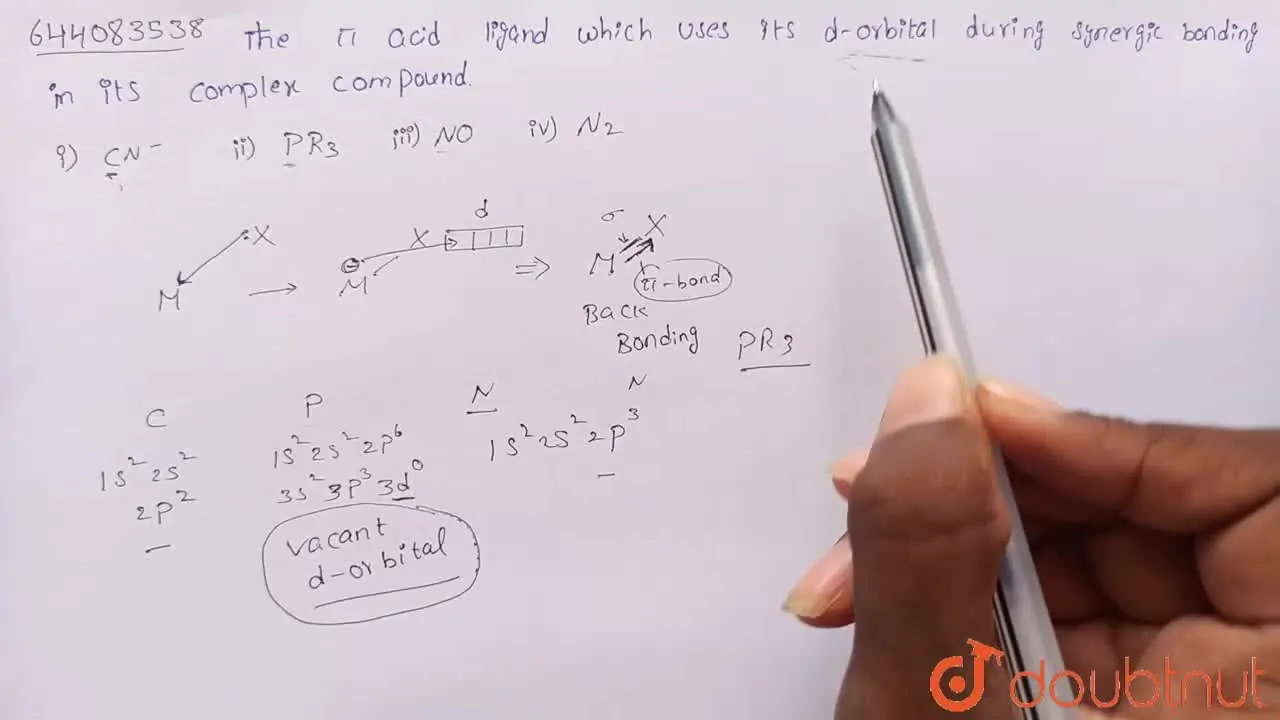 644083538 The π acid ligand which uses its d-orbital during synergic bonding
in its complex compound.
i) CN⁻ ii) PR3 iii) NO iv) N2
d
X X σ X
M → M ⇒ M π-bond
Back
Bonding PR3
C P N N
1s² 2s² 1s² 2s² 2p⁶ 1s² 2s² 2p³
2p² 3s² 3p³ 3d⁰
vacant
d-orbital
doubtnut